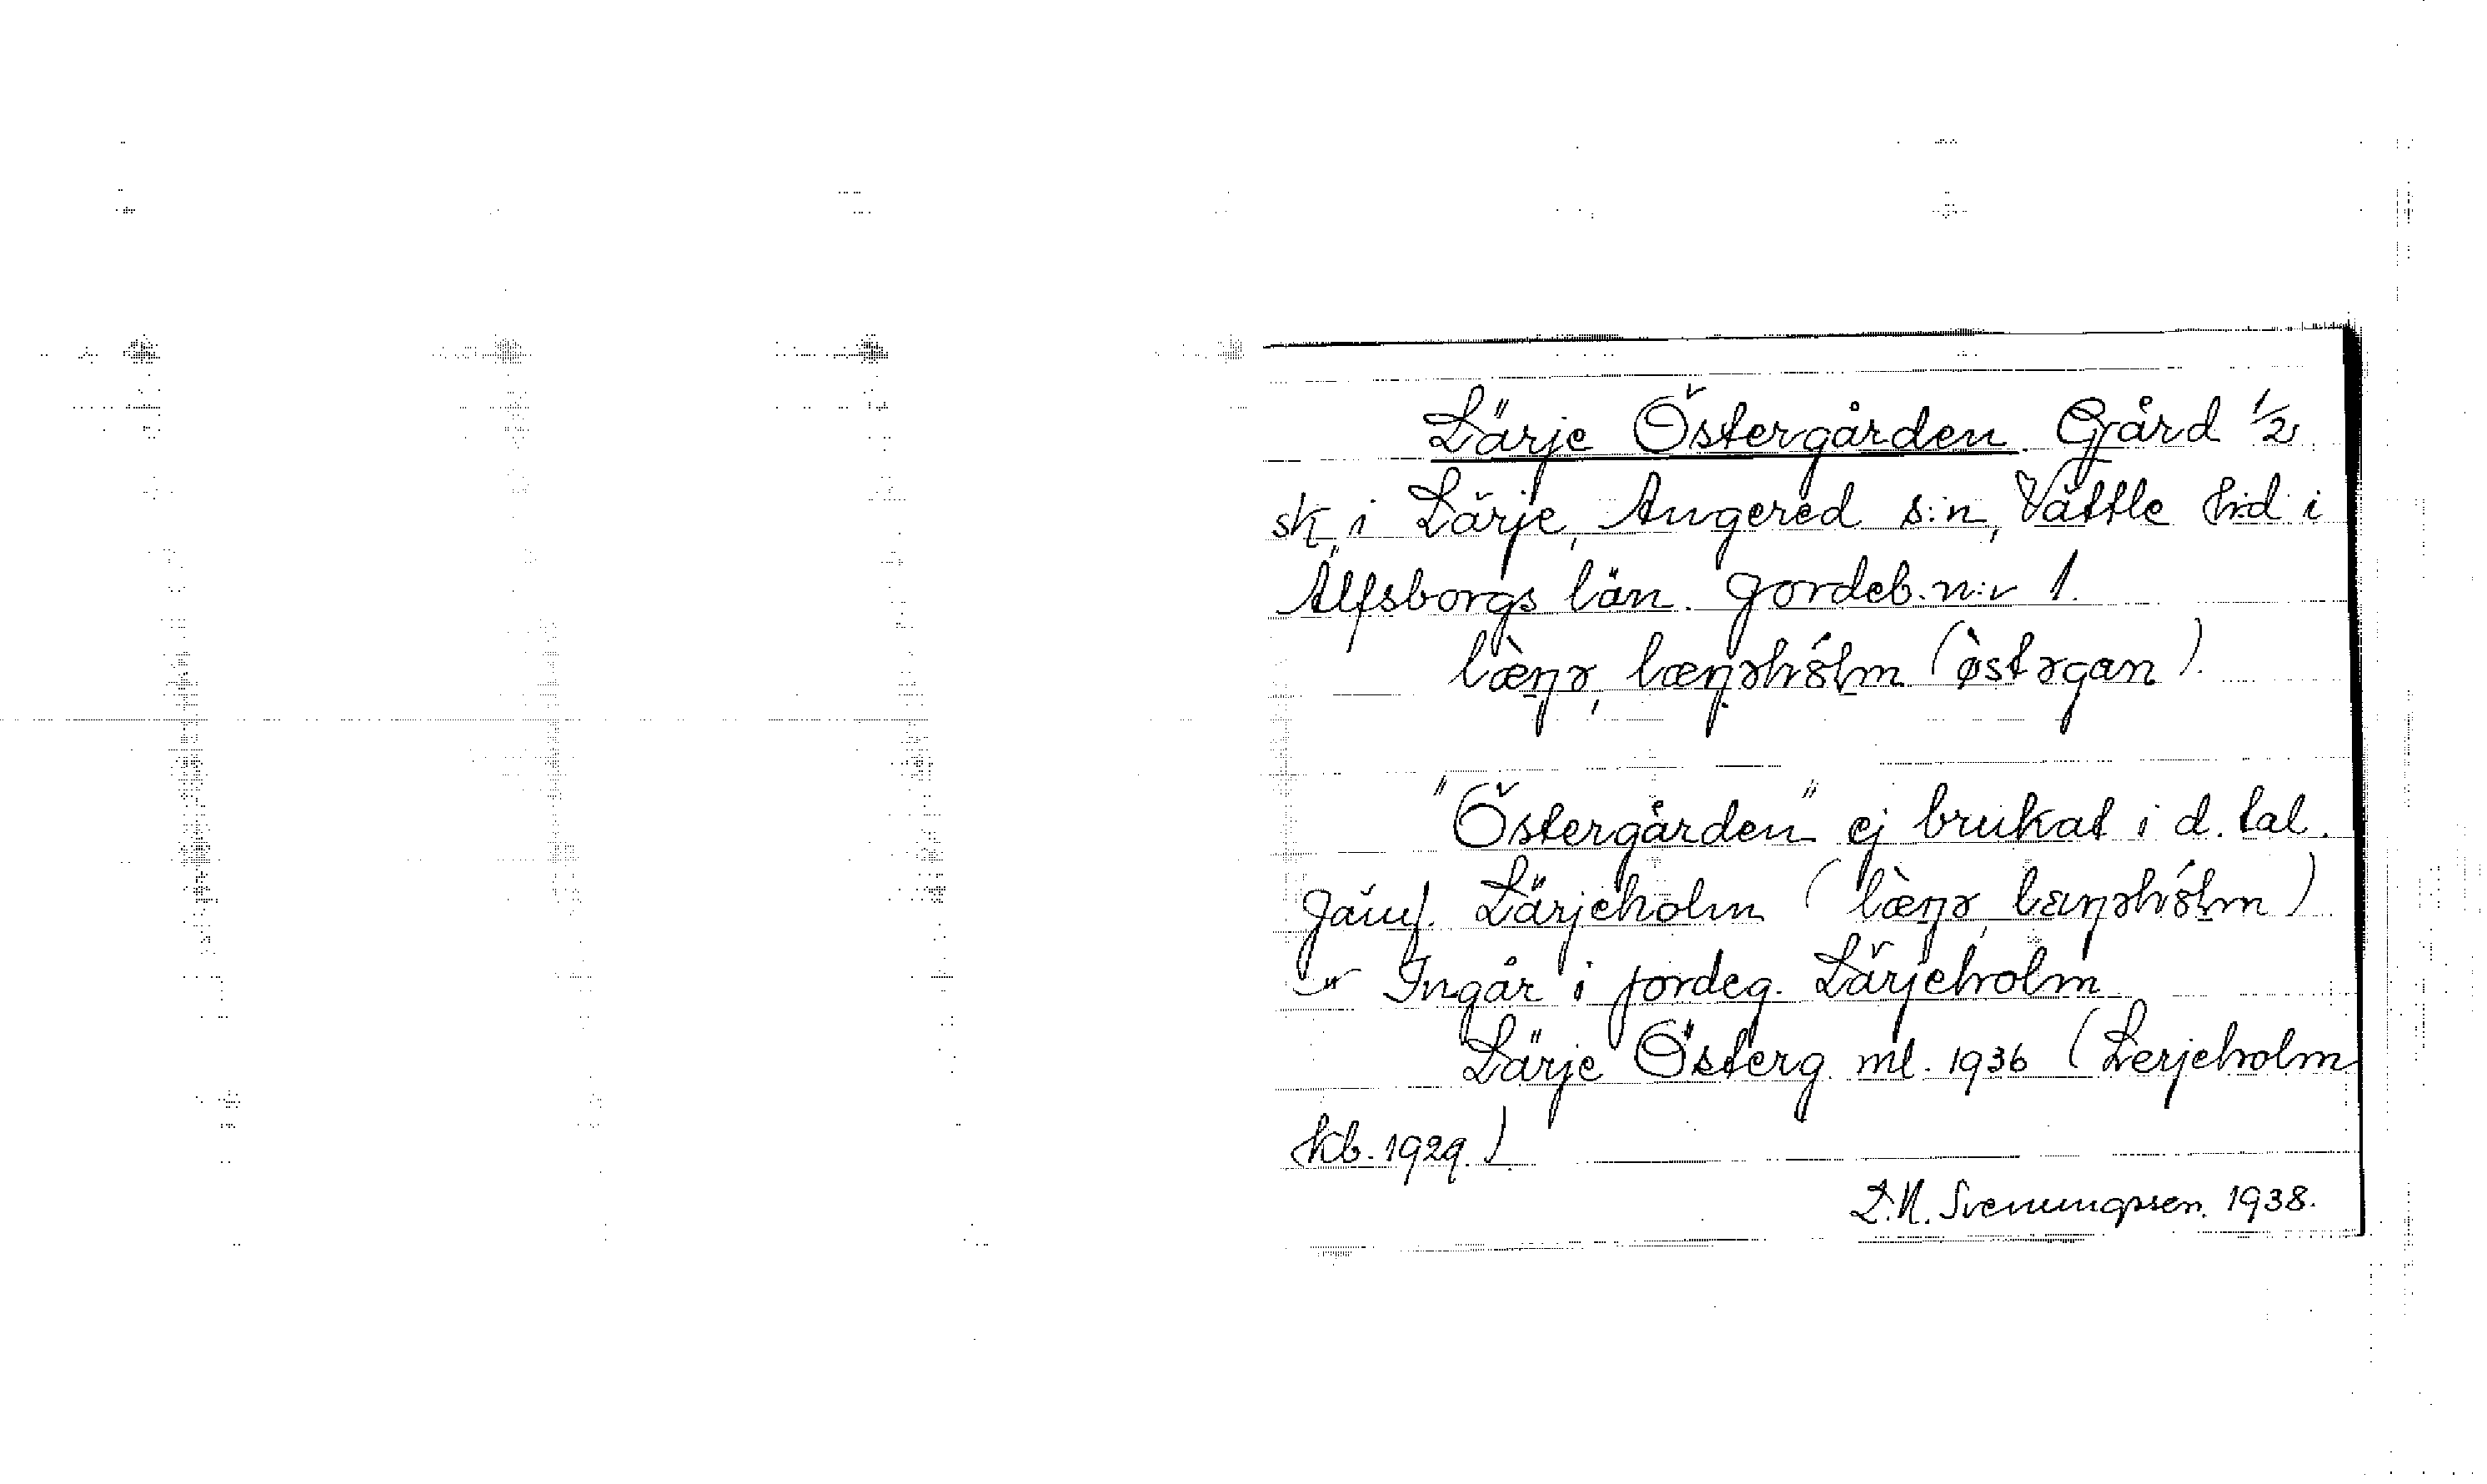 Lärje Östergården. Gård 1/2
sk. i Lärje, Angered s:n, Vättle hd i
Älfsborgs län. Jordeb. n:r 1.
(østərgan).
"Östergården" ej brukat i d. tal.
Jämf. Lärjeholm
Ingår i jordeg. Lärjeholm
Lärje Österg. ml. 1936 (Lerjeholm
kb. 1929.)
D.N. Svenungsson. 1938.